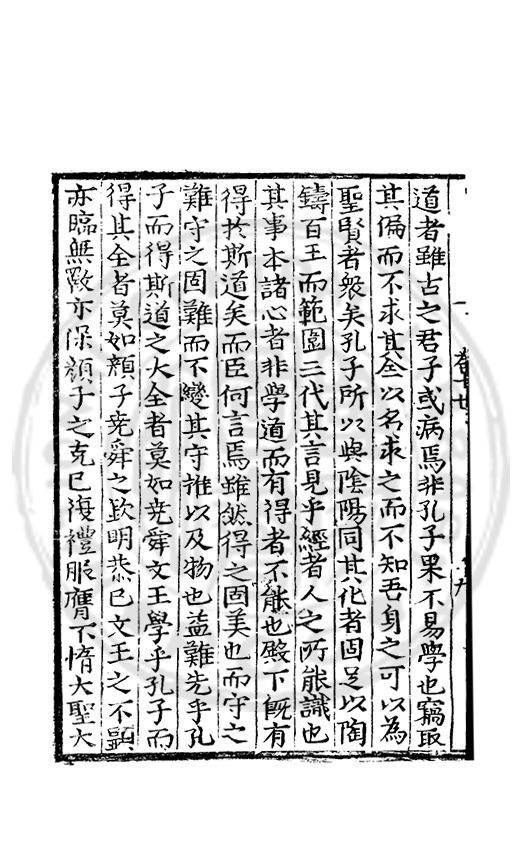 道者雖古之君子或病焉非孔子果不易學也竊取
其偏而不求其全以名求之而不知吾身之可以為
聖賢者衆矣孔子所以與陰陽同其化者固足以陶
鑄百王而範圍三代其言見乎經者人之所能識也
其事本諸心者非學道而有得者不能也殿下既有
得於斯道矣而臣何言焉雖然得之固美也而守之
難守之固難而不變其守推以及物也益難先乎孔
子而得斯道之大全者莫如堯舜文王學乎孔子而
得其全者莫如顏子堯舜之欽明恭已文王之不顯
亦臨無斁亦保顏子之克已復禮服膺不惰大聖大